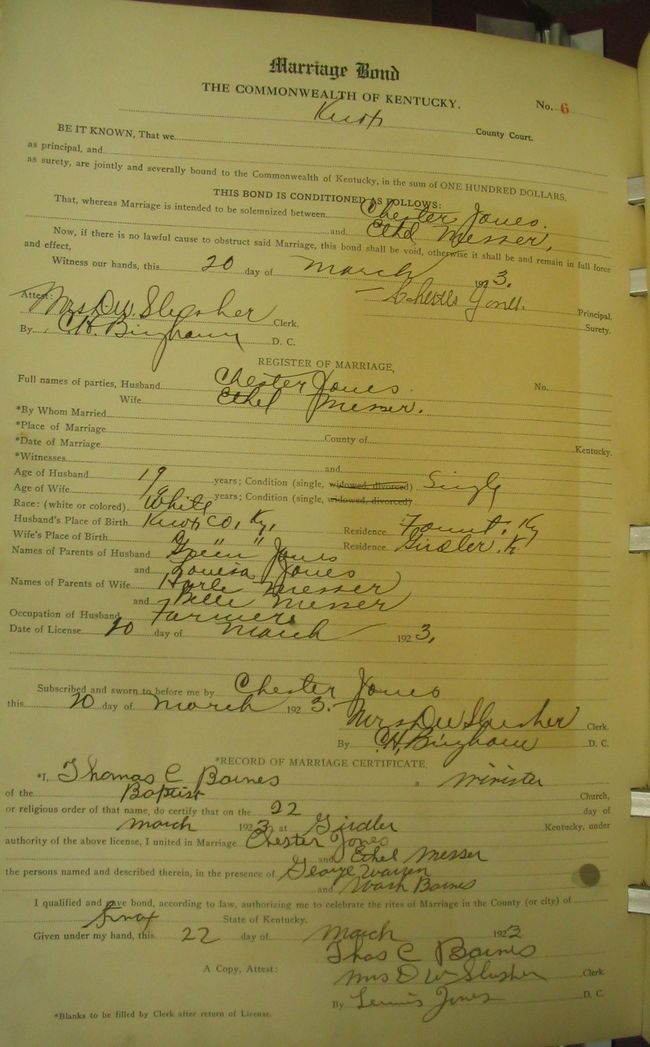 Marriage Bond
THE COMMONWEALTH OF KENTUCKY. No. 6
Knox County Court.
BE IT KNOWN, That we
as principal, and
as surety, are jointly and severally bound to the Commonwealth of Kentucky, in the sum of ONE HUNDRED DOLLARS.
THIS BOND IS CONDITIONED AS FOLLOWS:
That, whereas Marriage is intended to be solemnized between Chester Jones.
and Ethel Messer.
Now, if there is no lawful cause to obstruct said Marriage, this bond shall be void, otherwise it shall be and remain in full force
and effect,
Witness our hands, this 20 day of March 1923.
Chester Jones. Principal.
Attest: Mrs D W. Slusher Clerk. Surety.
By C. H. Bingham D. C.
REGISTER OF MARRIAGE,
Full names of parties, Husband Chester Jones. No.
Wife Ethel Messer.
*By Whom Married
*Place of Marriage County of Kentucky.
*Date of Marriage
*Witnesses and
Age of Husband 19 years; Condition (single, widowed, divorced) Single
Age of Wife years; Condition (single, widowed, divorced)
Race: (white or colored) White
Husband's Place of Birth Knox Co, Ky. Residence Fount, Ky
Wife's Place of Birth " " Residence Girdler, K
Names of Parents of Husband Jones
and Louisa Jones
Names of Parents of Wife Messer
and Belle Messer
Occupation of Husband Farmer
Date of License 20 day of March 1923.
Subscribed and sworn to before me by Chester Jones
this 20 day of March 1923.
Mrs D W Slusher Clerk.
By C. H. Bingham D. C.
*RECORD OF MARRIAGE CERTIFICATE.
*I, Thomas C Baines a Minister
of the Baptist Church,
or religious order of that name, do certify that on the 22 day of
March 1923 at Girdler Kentucky, under
authority of the above license, I united in Marriage Chester Jones
and Ethel Messer
the persons named and described therein, in the presence of George Warren
and Wash Baines
I qualified and gave bond, according to law, authorizing me to celebrate the rites of Marriage in the County (or city) of
Knox State of Kentucky.
Given under my hand, this 22 day of March 1923
Thos C Baines
A Copy, Attest: Mrs D W Slusher Clerk.
By Jones D. C.
*Blanks to be filled by Clerk after return of License.